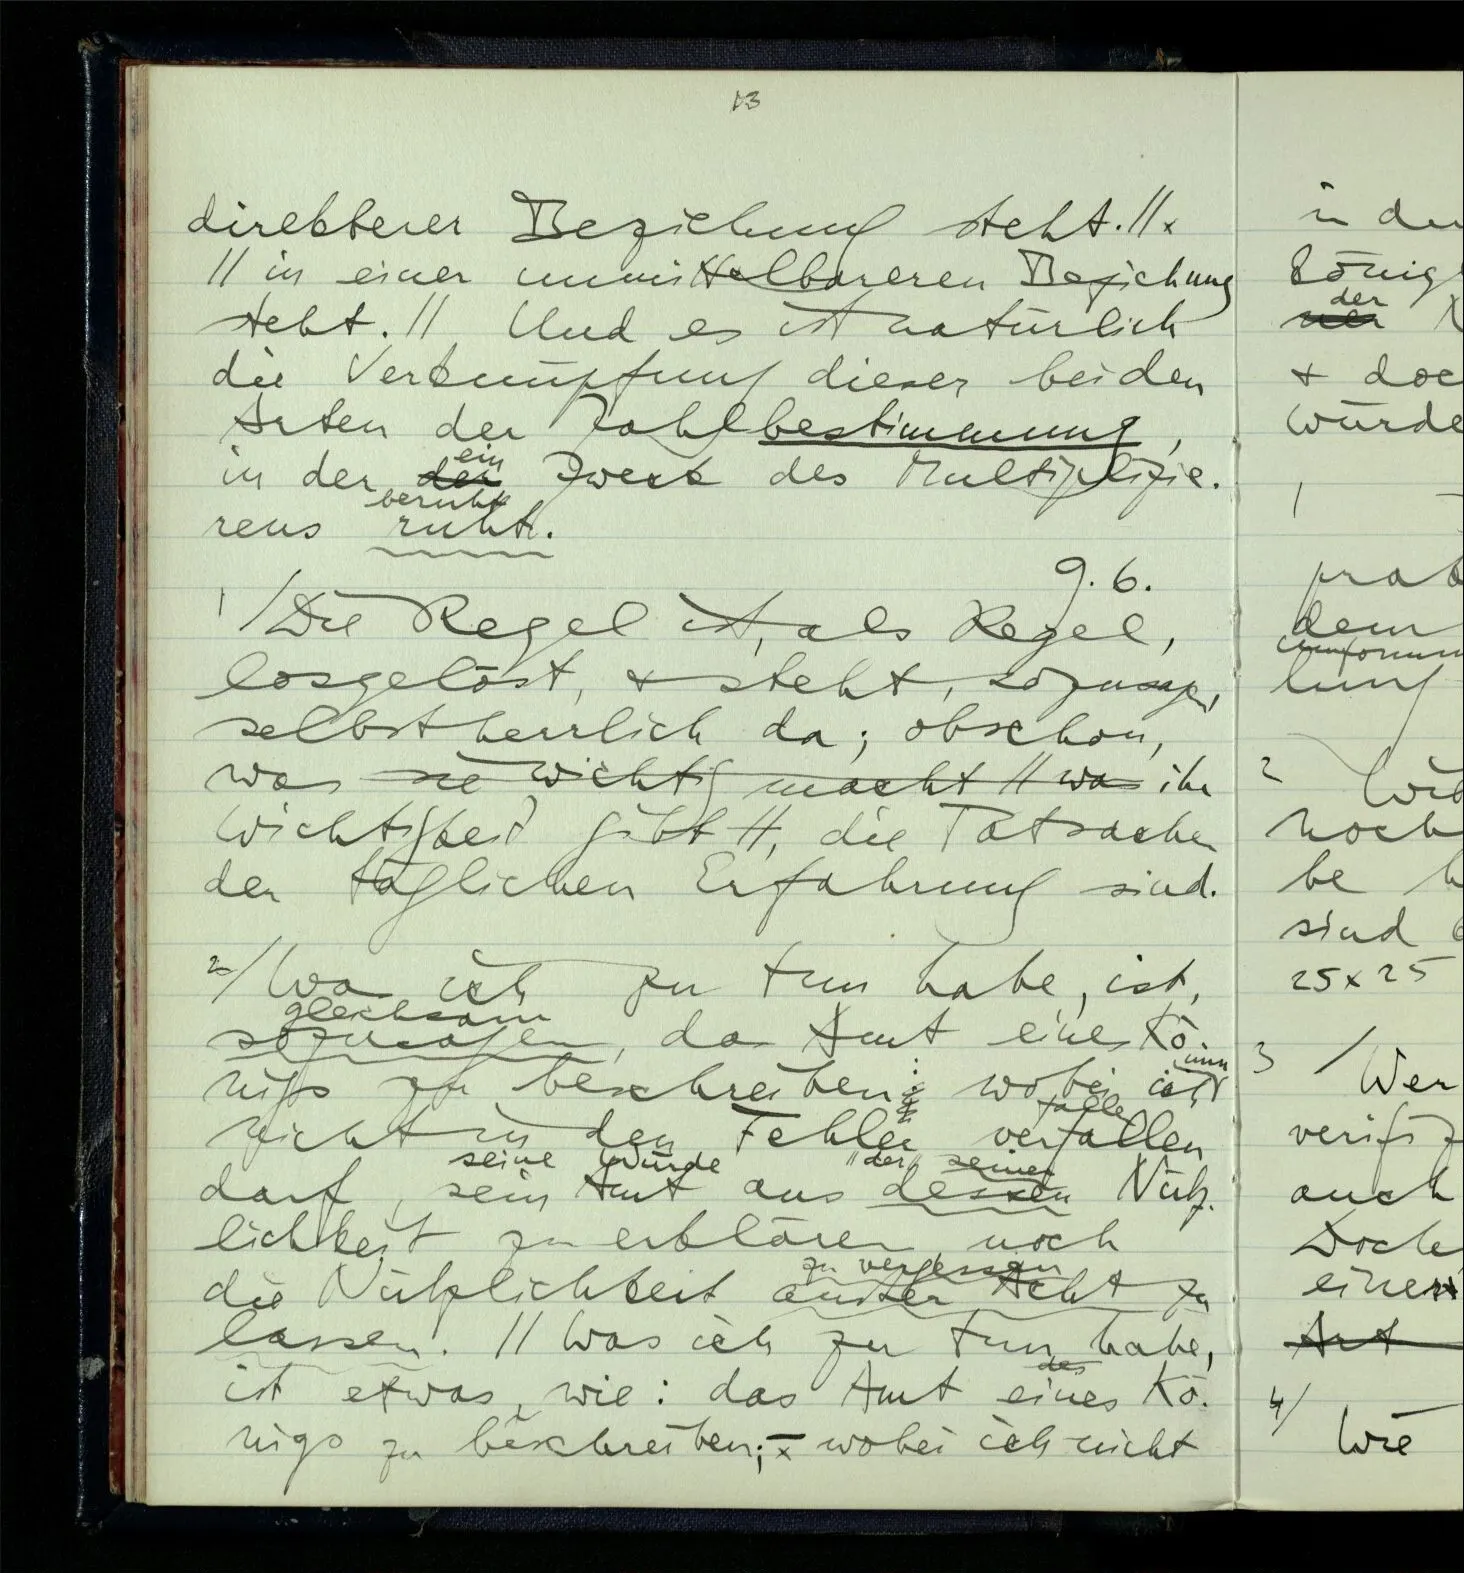 13
direkterer Beziehung steht. //×
// in einer unmittelbareren Beziehung
steht. // Und es ist natürlich
die Verknüpfung dieser beiden
Arten der Zahlbestimmung,
ein
in der der Zweck des Multiplizie-
beruht
rens ruht.
9.6.
1 / Die Regel ist, als Regel,
losgelöst, & steht, sozusagen,
selbstherrlich da; obschon,
was sie wichtig macht // was ihr
Wichtigkeit gibt //, die Tatsachen
der täglichen Erfahrung sind.
2 / Was ich zu tun habe, ist,
gleichsam
sozusagen, das Amt eines Kö-
nun
nigs zu beschreiben; wobei ich
falle
nicht in den Fehler verfallen
seine Würde "der" seiner
darf, sein Amt aus dessen Nütz-
lichkeit zu erklären noch
zu vergessen
die Nützlichkeit außer Acht zu
lassen. // Was ich zu tun habe,
des
ist etwas, wie: das Amt eines Kö-
nigs zu beschreiben; × wobei ich nicht
in
König
der
& doc
würde
1
dem
2
noch
be
sind
25×25
3 / Wer
verifiz
auch
Doch
einen
Art
4/ Wie